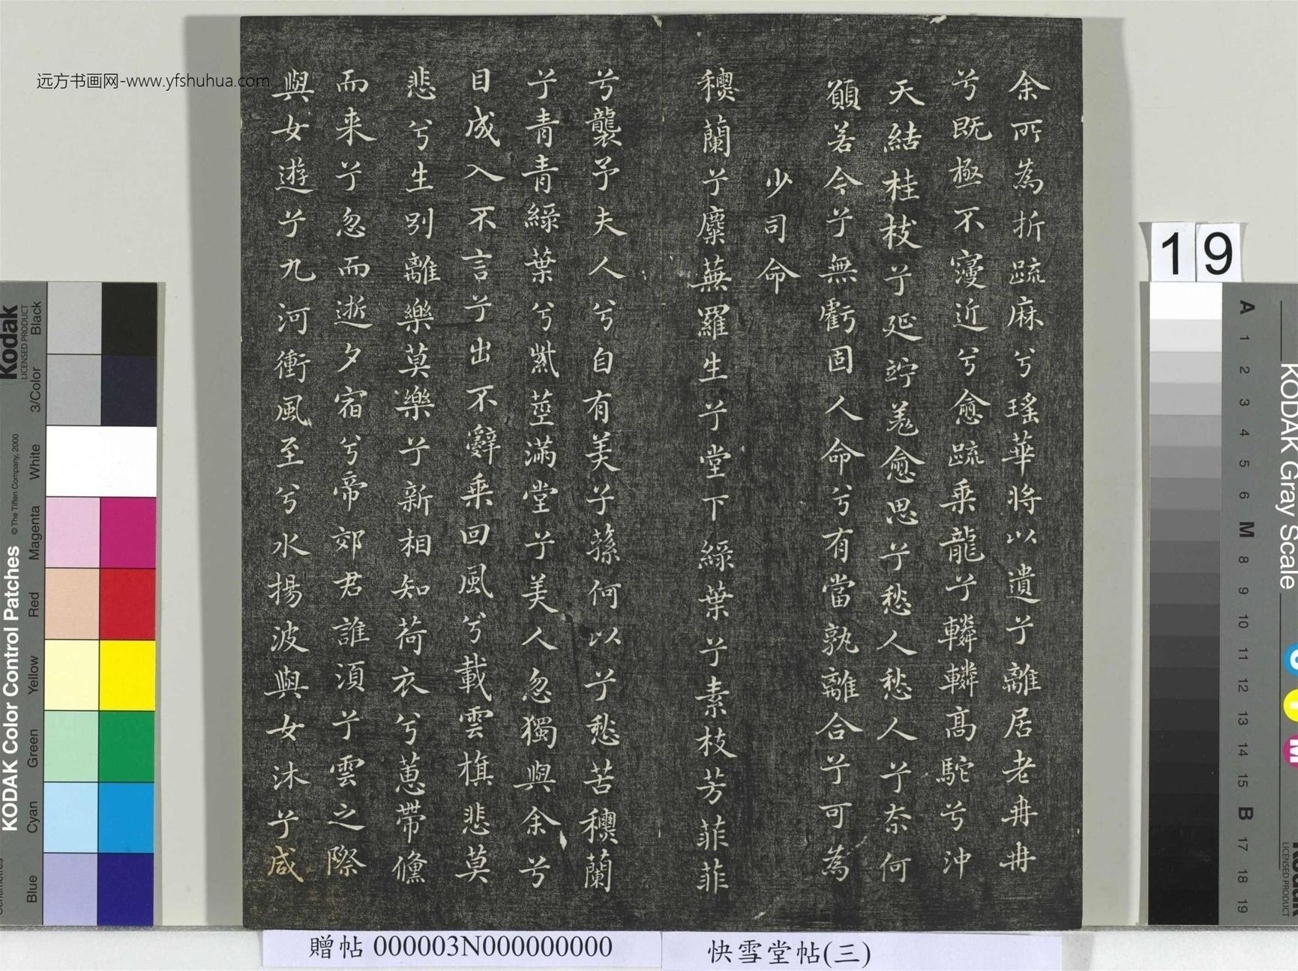 余所為折疏麻兮瑤華將以遺兮離居老冉冉
兮既極不寖近兮愈疏乘龍兮轔轔高駝兮沖
天結桂枝兮延竚羗愈思兮愁人愁人兮奈何
願若今兮無虧固人命兮有當孰離合兮可為
少司命
穗蘭兮麋蕪羅生兮堂下綠葉兮素枝芳菲菲
兮襲予夫人兮自有美子蓀何以兮愁苦穗蘭
兮青青綠葉兮紫莖滿堂兮美人忽獨與余兮
目成入不言兮出不辭乘回風兮載雲旗悲莫
悲兮生別離樂莫樂兮新相知荷衣兮蕙帶儵
而来兮忽而逝夕宿兮帝郊君誰須兮雲之際
與女遊兮九河衝風至兮水揚波與女沐兮咸
远方书画网-www.yfshuhua.com
贈帖 000003N000000000
快雪堂帖(三)
19
KODAK Color Control Patches
© The Tiffen Company, 2000
Kodak
LICENSED PRODUCT
Blue
Cyan
Green
Yellow
Red
Magenta
White
3/Color
Black
KODAK Gray Scale
A 1 2 3 4 5 6 M 8 9 10 11 12 13 14 15 B 17 18 19